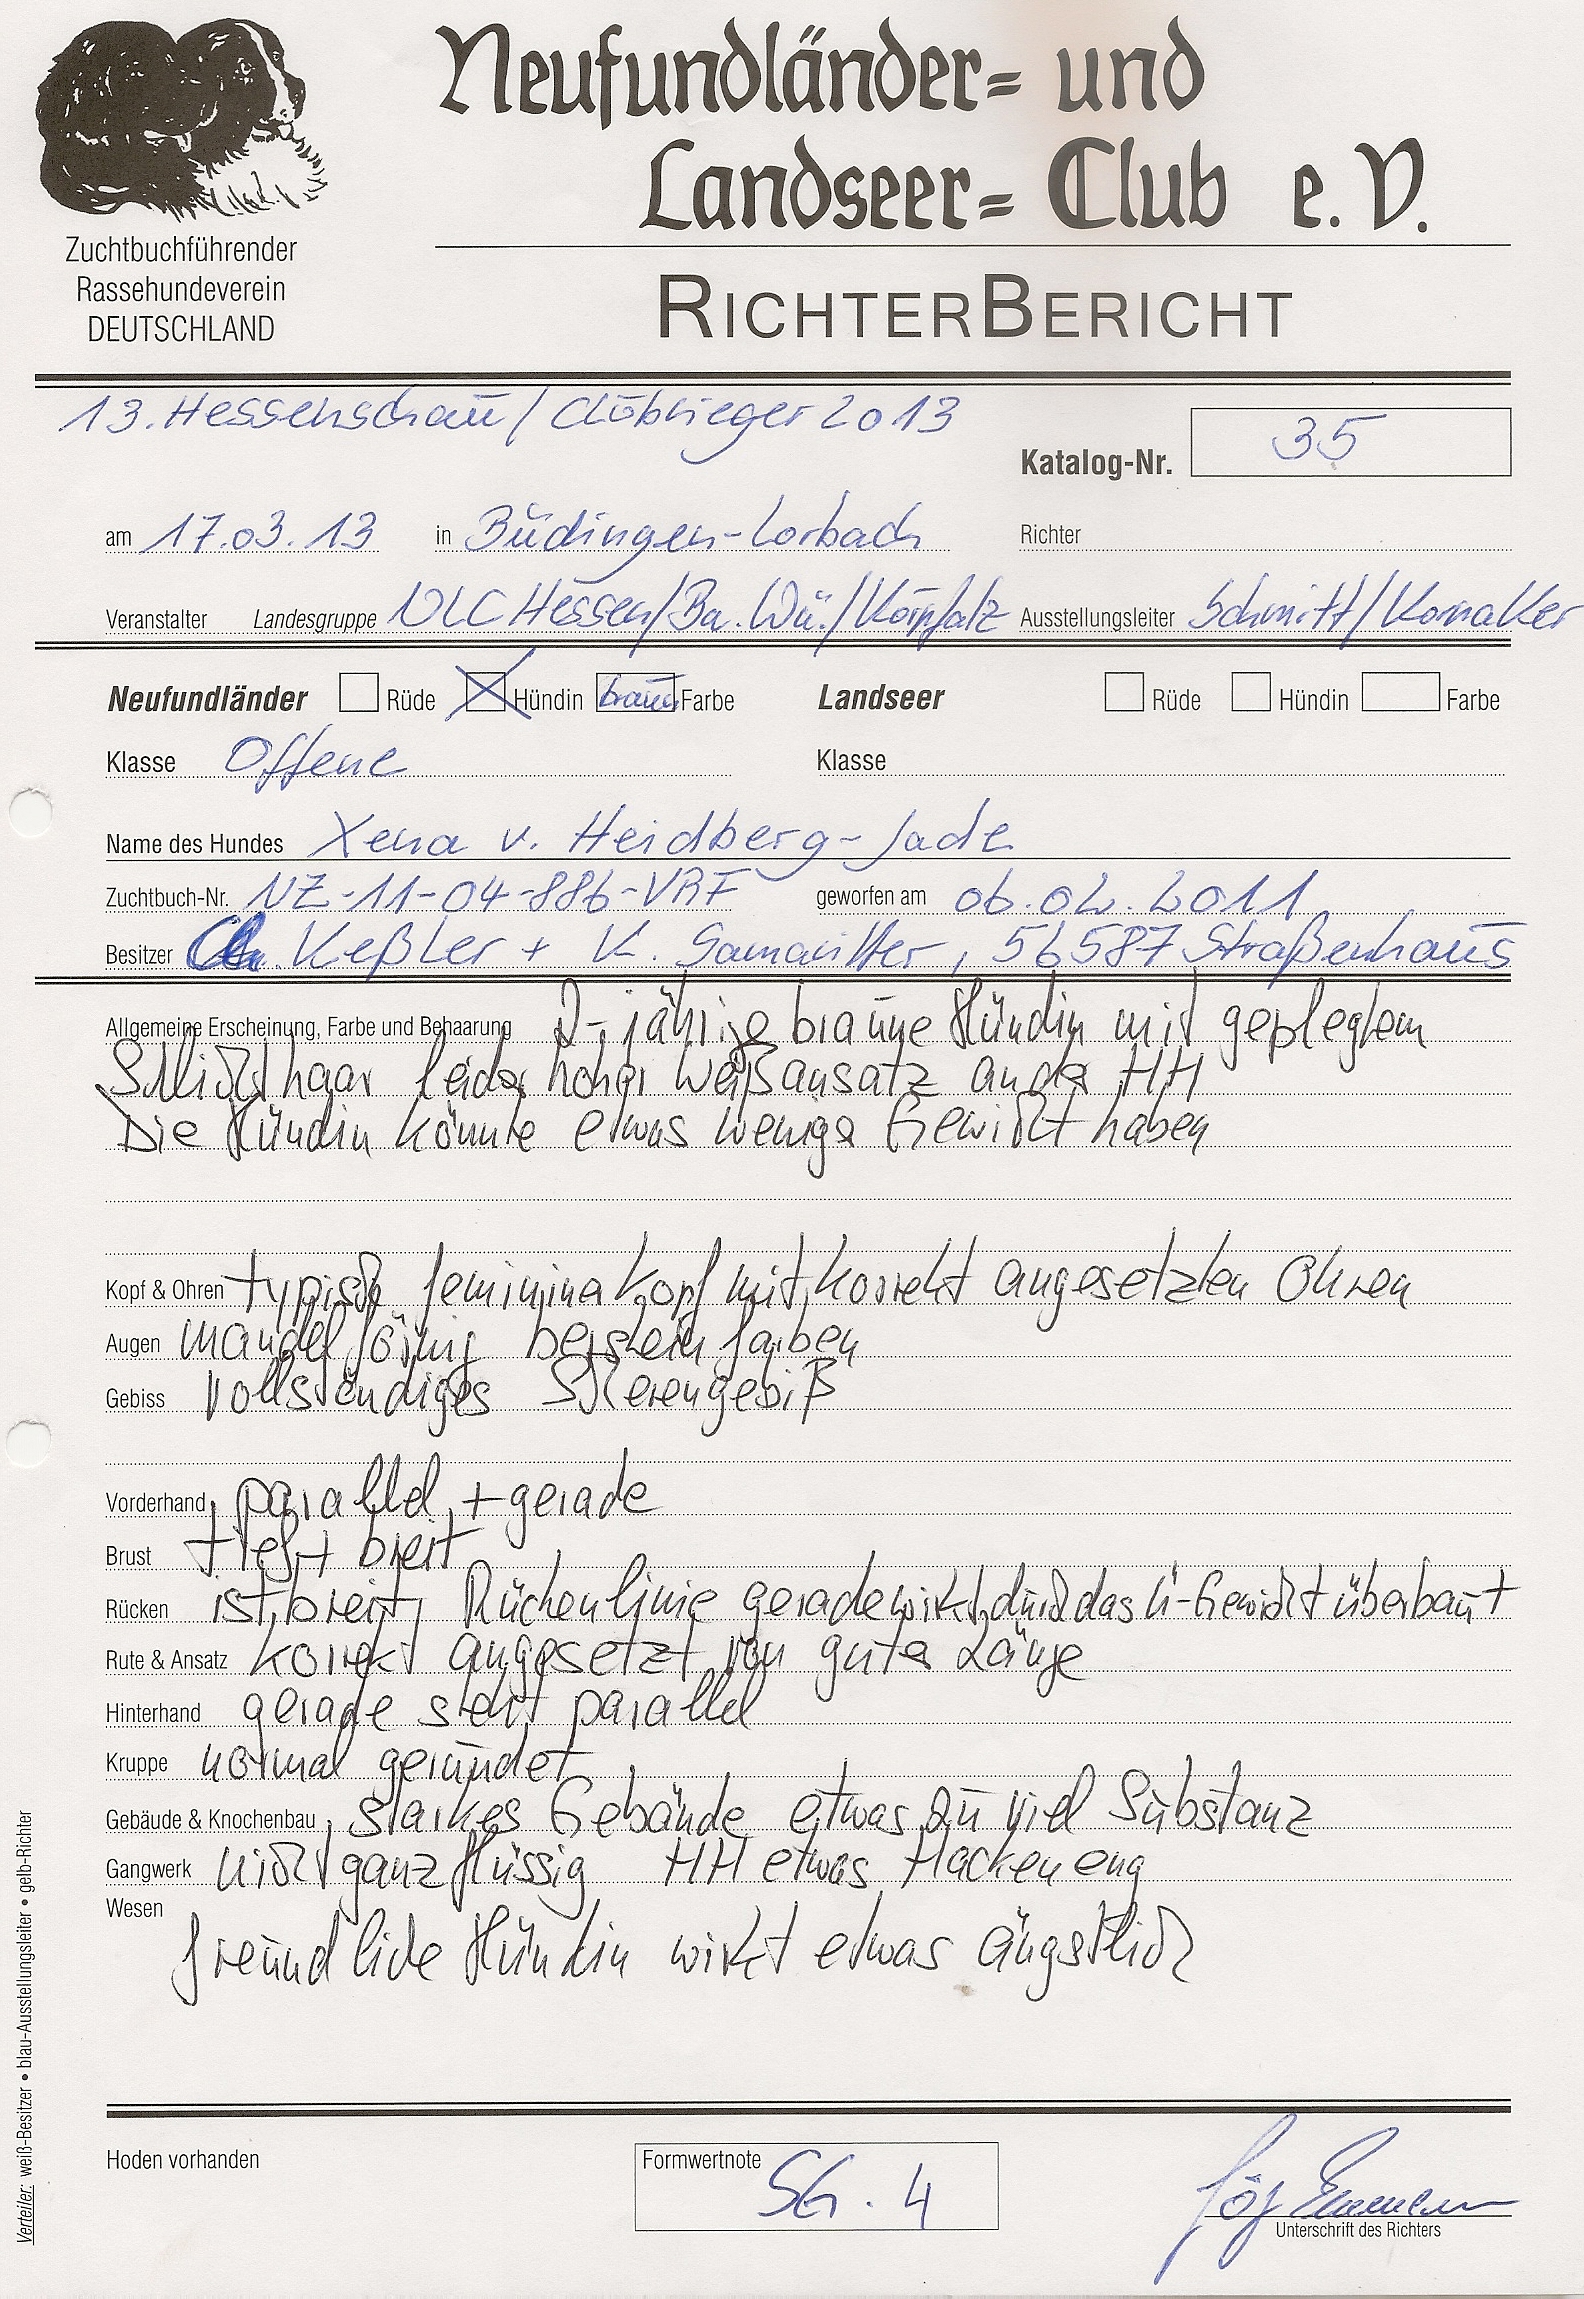 Neufundländer= und
Landseer= Club e. V.
Zuchtbuchführender
Rassehundeverein
DEUTSCHLAND
RICHTERBERICHT
13. Hessenschau / Clubsieger 2013
Katalog-Nr. 35
am 17.03.13 in Büdingen-Lorbach Richter
Veranstalter Landesgruppe NLC Hessen/Ba.Wü./Kurpfalz Ausstellungsleiter Schmitt/Kornaker
Neufundländer Rüde X Hündin braun Farbe Landseer Rüde Hündin Farbe
Klasse Offene Klasse
Name des Hundes Xena v. Heidberg-Jade
Zuchtbuch-Nr. NZ-11-04-886-VRF geworfen am 06.02.2011
Besitzer Keßler + K. 56587 Straßenhaus
Allgemeine Erscheinung, Farbe und Behaarung 2-jährige braune Hündin mit gepflegtem
Schlichthaar leider hoher Weißansatz an der HH
Die Hündin könnte etwas weniger Gewicht haben
Kopf & Ohren typisch femininer Kopf mit korrekt angesetzten Ohren
Augen mandelförmig bernsteinfarben
Gebiss vollständiges Scherengebiß
Vorderhand parallel + gerade
Brust tief + breit
Rücken ist breit, Rückenlinie gerade wirkt durch das Ü-Gewicht überbaut
Rute & Ansatz korrekt angesetzt von guter Länge
Hinterhand gerade steht parallel
Kruppe normal gerundet
Gebäude & Knochenbau starkes Gebäude etwas zu viel Substanz
Gangwerk nicht ganz flüssig HH etwas Hackeneng
Wesen
freundliche Hündin wirkt etwas ängstlich
Hoden vorhanden
Formwertnote SG. 4
Unterschrift des Richters
Verteiler: weiß-Besitzer • blau-Ausstellungsleiter • gelb-Richter